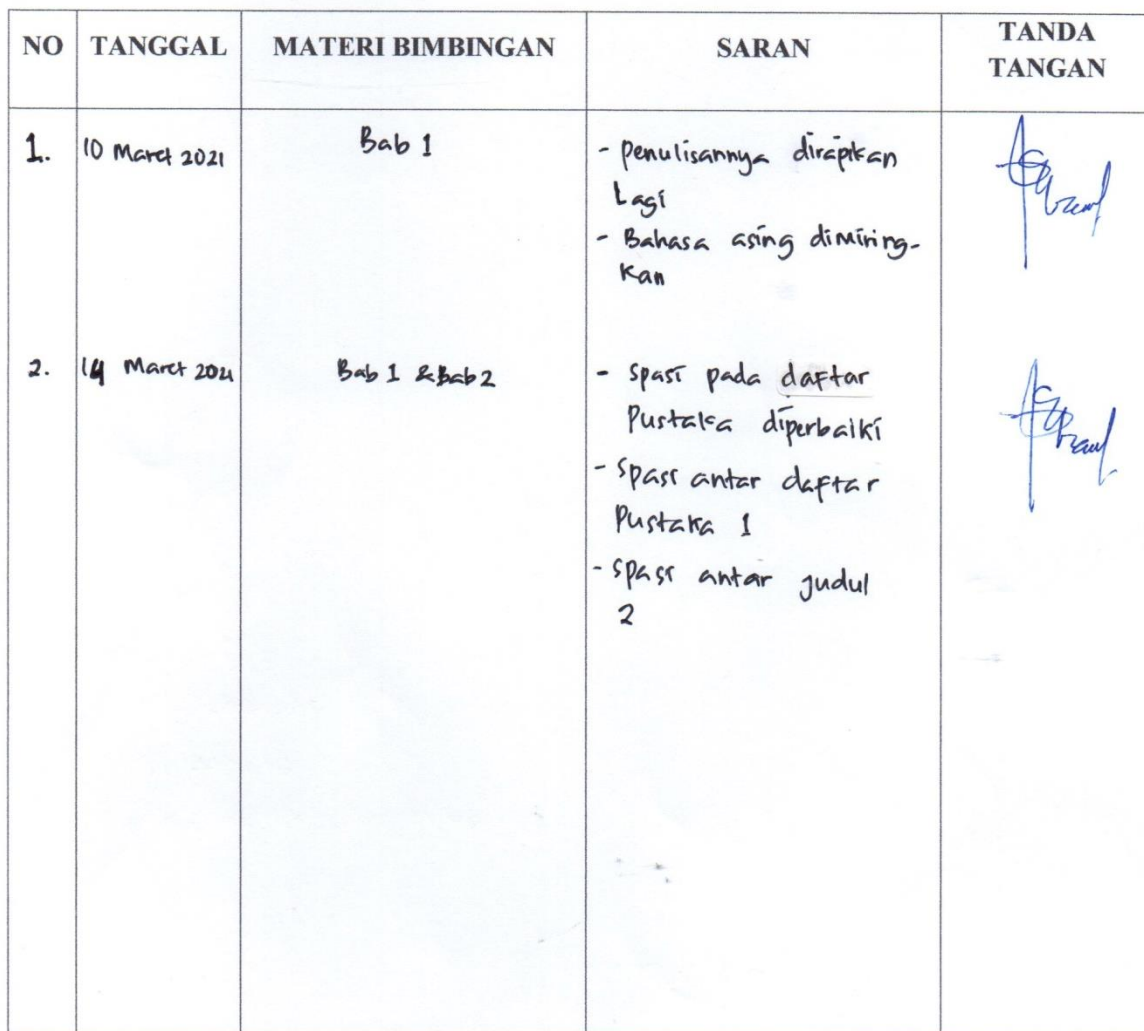 NO TANGGAL MATERI BIMBINGAN SARAN TANDA
TANGAN
1. 10 Maret 2021 Bab 1 - Penulisannya dirapikan
Lagi
- Bahasa asing dimiring-
kan
2. 14 Maret 2021 Bab 1 & Bab 2 - Spasi pada daftar
Pustaka diperbaiki
- Spasi antar daftar
Pustaka 1
- Spasi antar judul
2